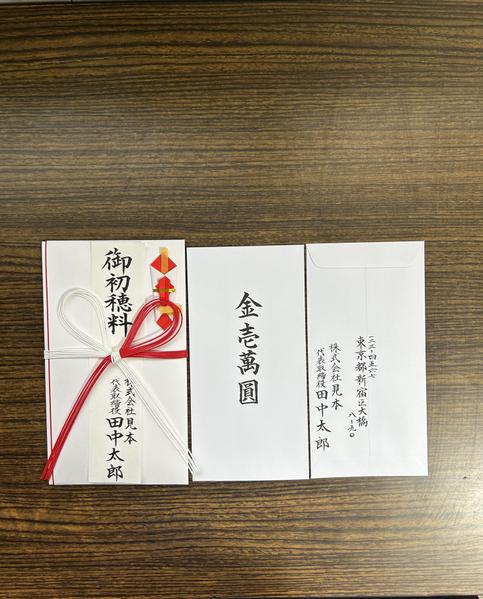 御初穂料
株式会社見本
代表取締役 田中太郎
金壱萬圓
一二三-四五六七
東京都新宿区大橋
八-九〇
株式会社見本
代表取締役 田中太郎